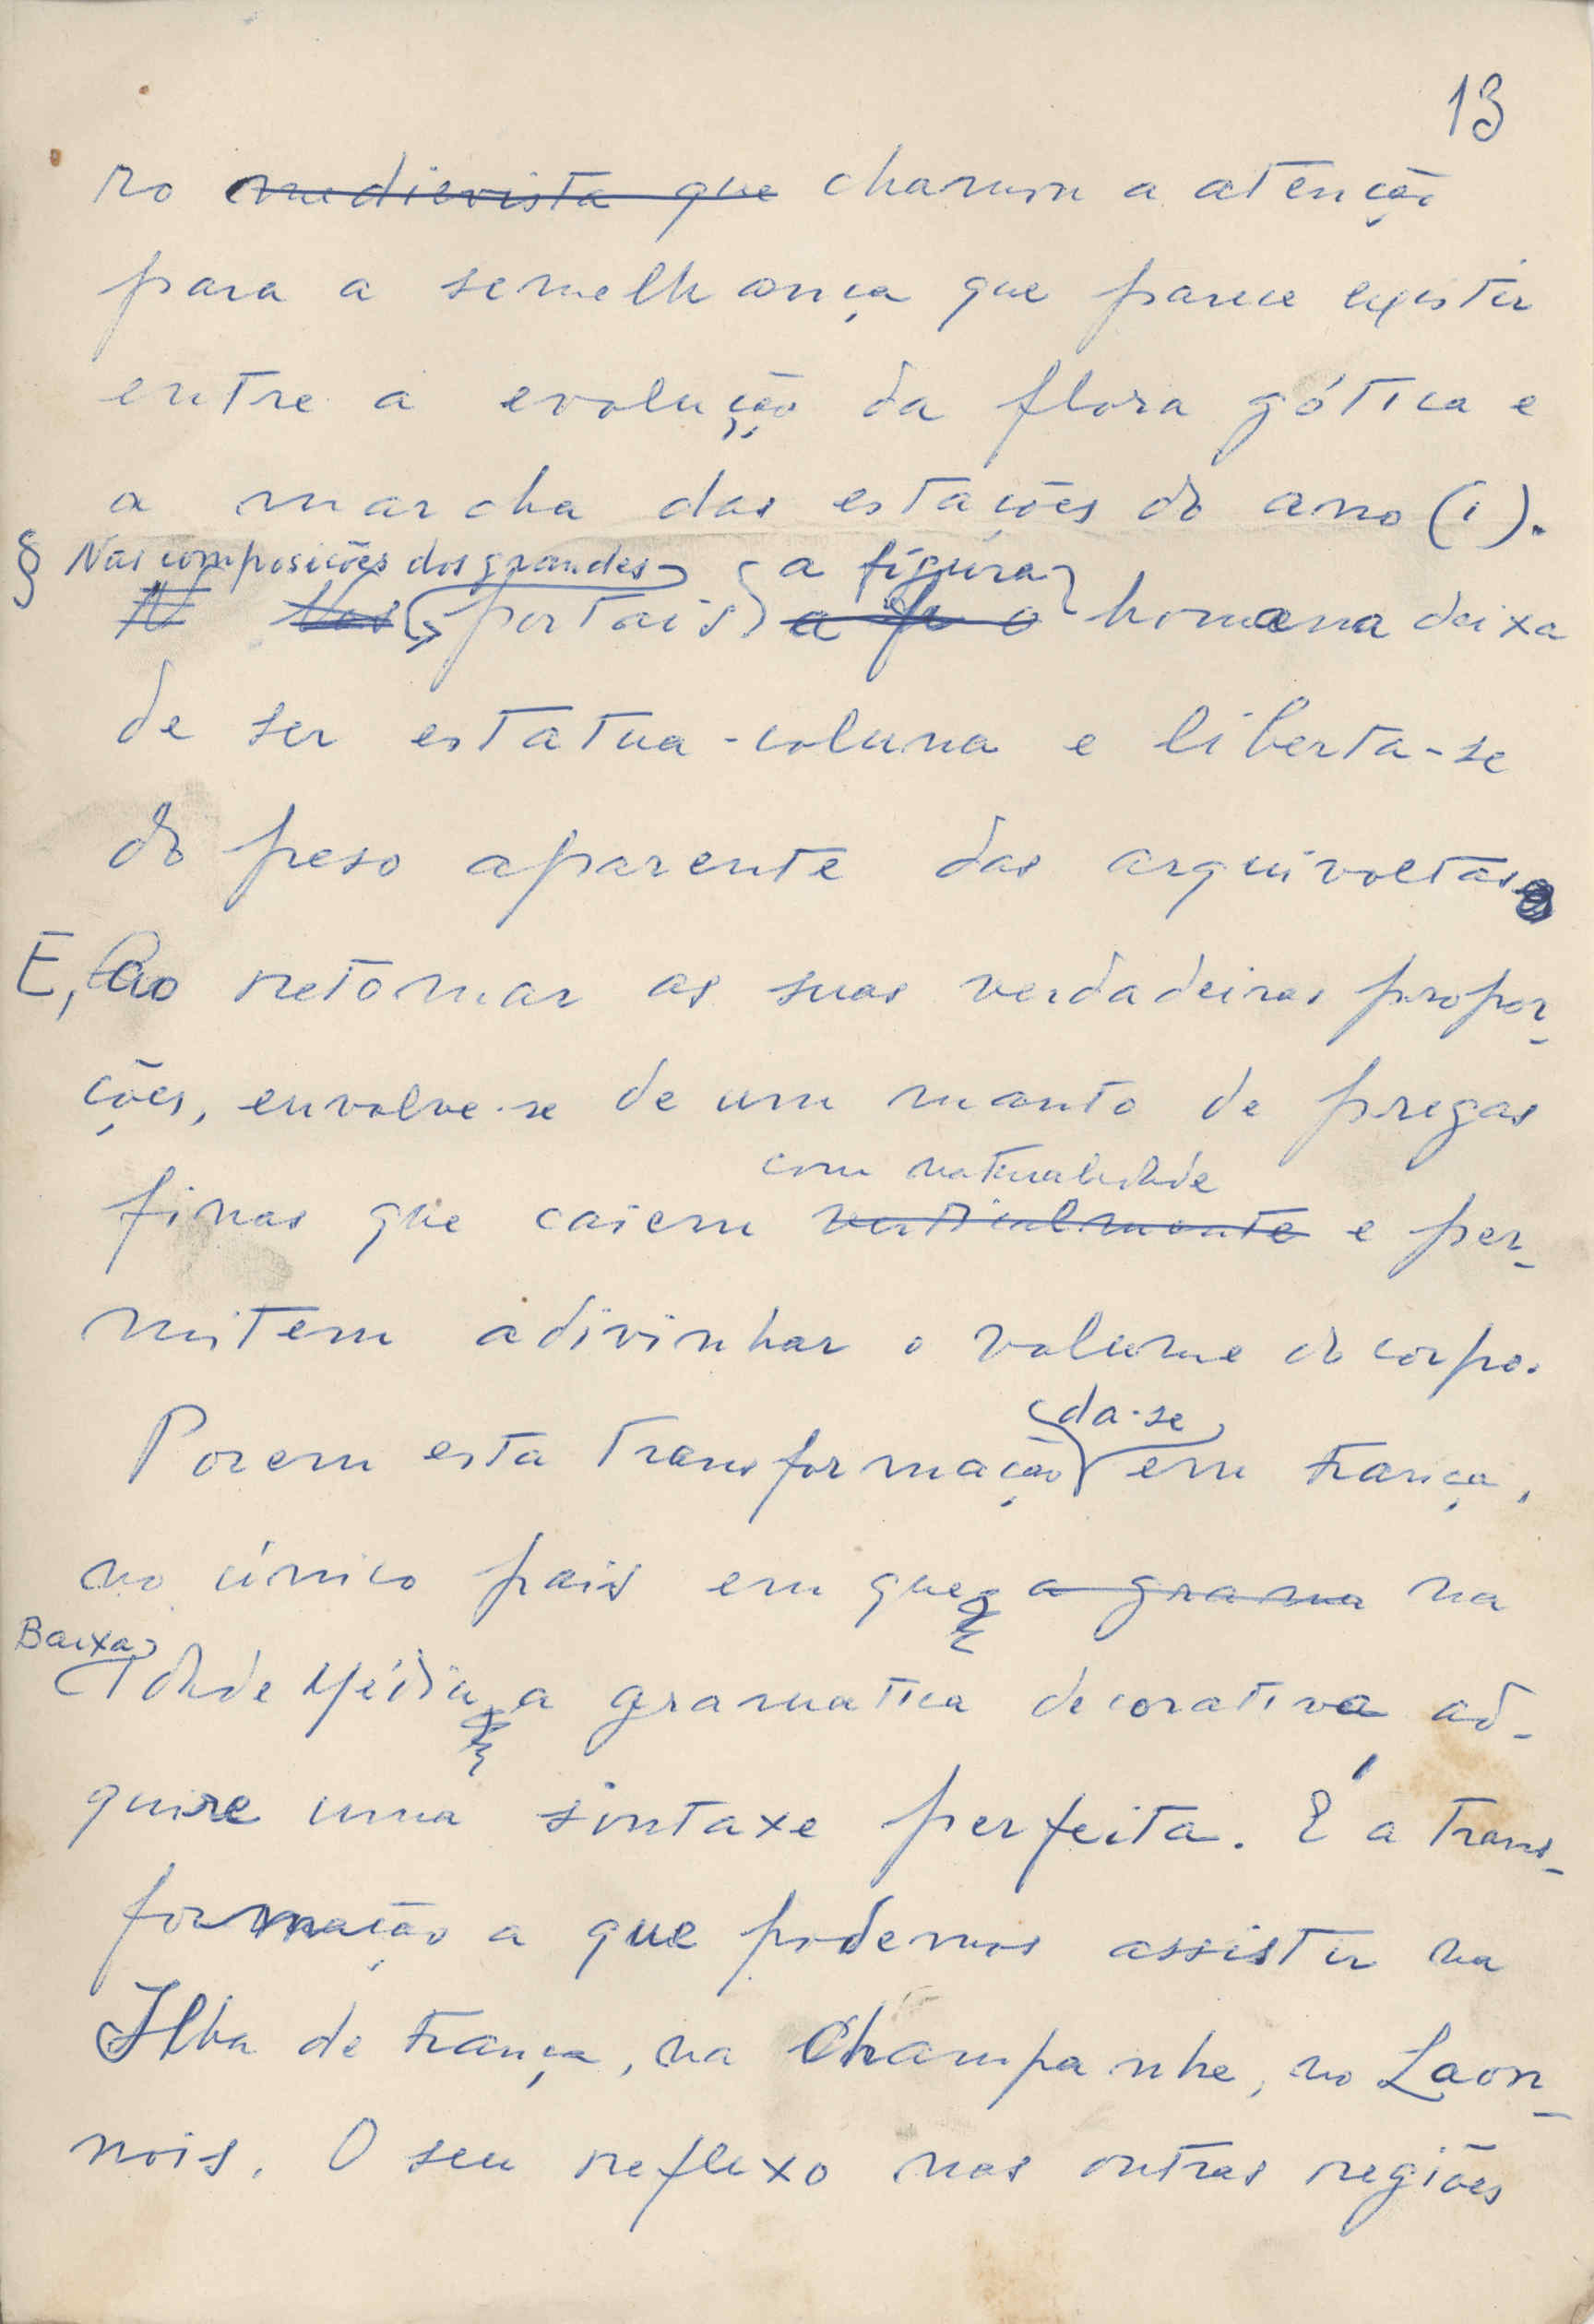 13
ro medievista que chamou a atenção
para a semelhança que parece existir
entre a evolução da flora gótica e
a marcha das estações do ano (1).
§ Nas composições dos grandes a figura
N Nos portais a fi o humana deixa
de ser estatua-coluna e liberta-se
do peso aparente das arquivoltas
E, ao retomar as suas verdadeiras propor-
ções, envolve-se de um manto de pregas
com naturalidade
finas que caiem verticalmente e per-
mitem adivinhar o volume do corpo.
da-se
Porem esta transformação em França,
no único pais em que a grama na
Baixa
Idade Média a gramatica decorativa ad-
quire uma sintaxe perfeita. É a trans-
formação a que podemos assistir na
Ilha de França, na Champanhe, no Laon-
nois. O seu reflexo nas outras regiões